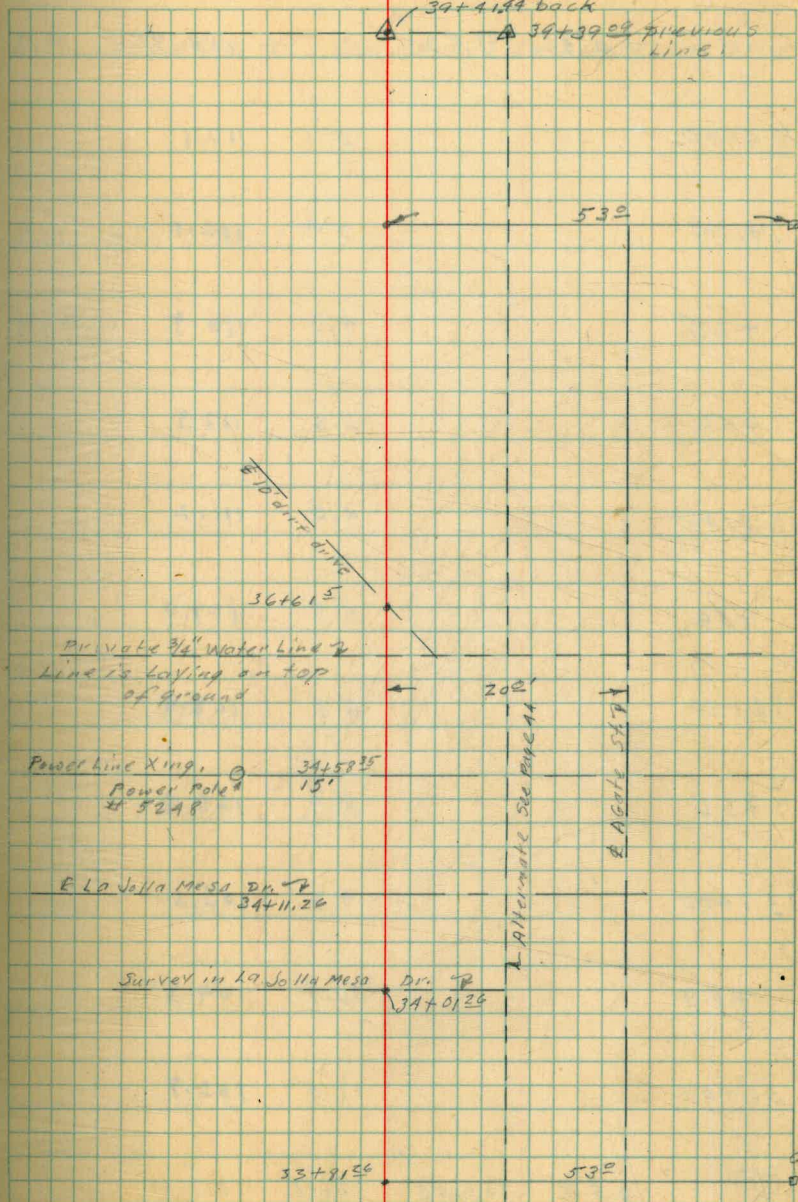 39+41.44 back
39+39 09 previous
Line.
53 0
℄ 10' dirt drive
36+61 5
Private 3/4" Water Line
Line is Laying on top
of ground
20 0'
Power Line Xing.
34+58 35
Power Pole
15'
# 5248
Alternate See Page 44
℄ Agate St.
℄ La Jolla Mesa Dr.
34+11.26
Survey in La Jolla Mesa Dr.
34+01 26
33+91 26
53 0